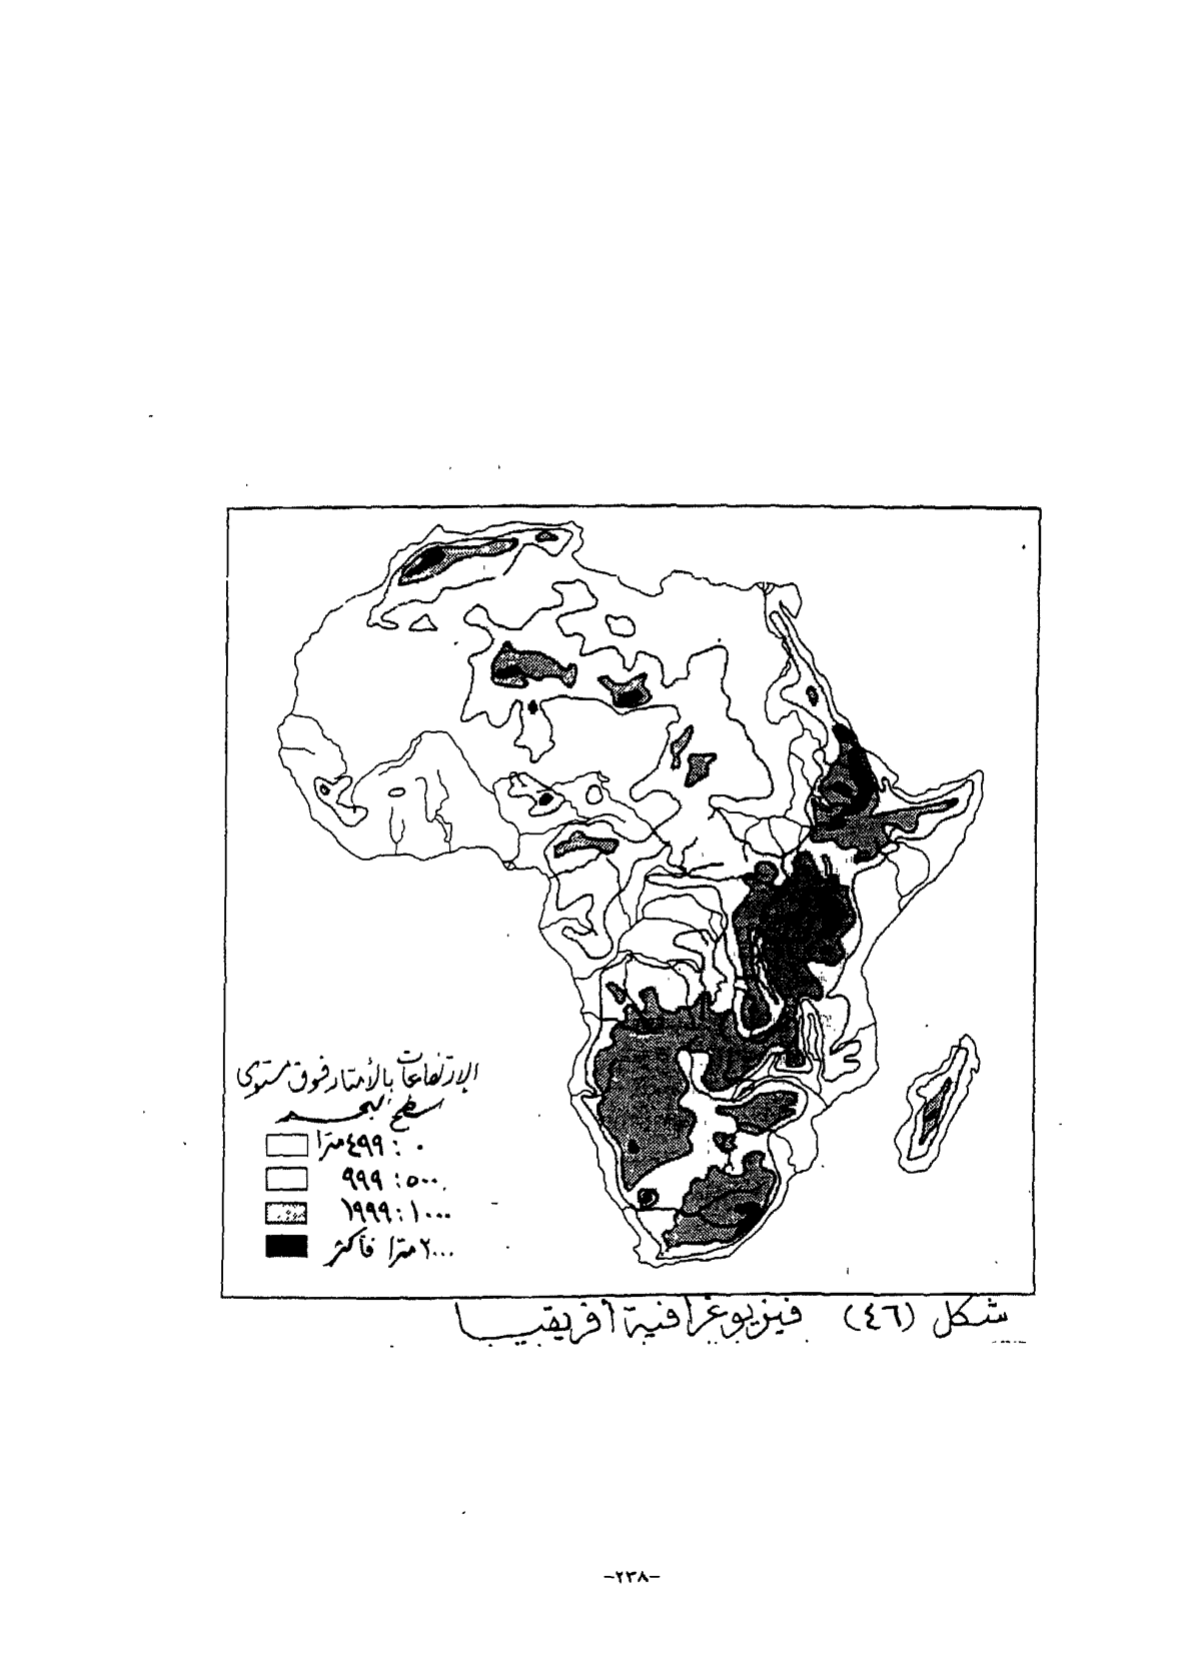 الإرتفاعات بالأمتار فوق مستوى
سطح البحر
٠ : ٤٩٩ مترا
٥٠٠ : ٩٩٩
١٠٠٠ : ١٩٩٩
٢٠٠٠ مترا فأكثر
شكل (٤٦) فيزيوغرافية أفريقيا
-٢٣٨-